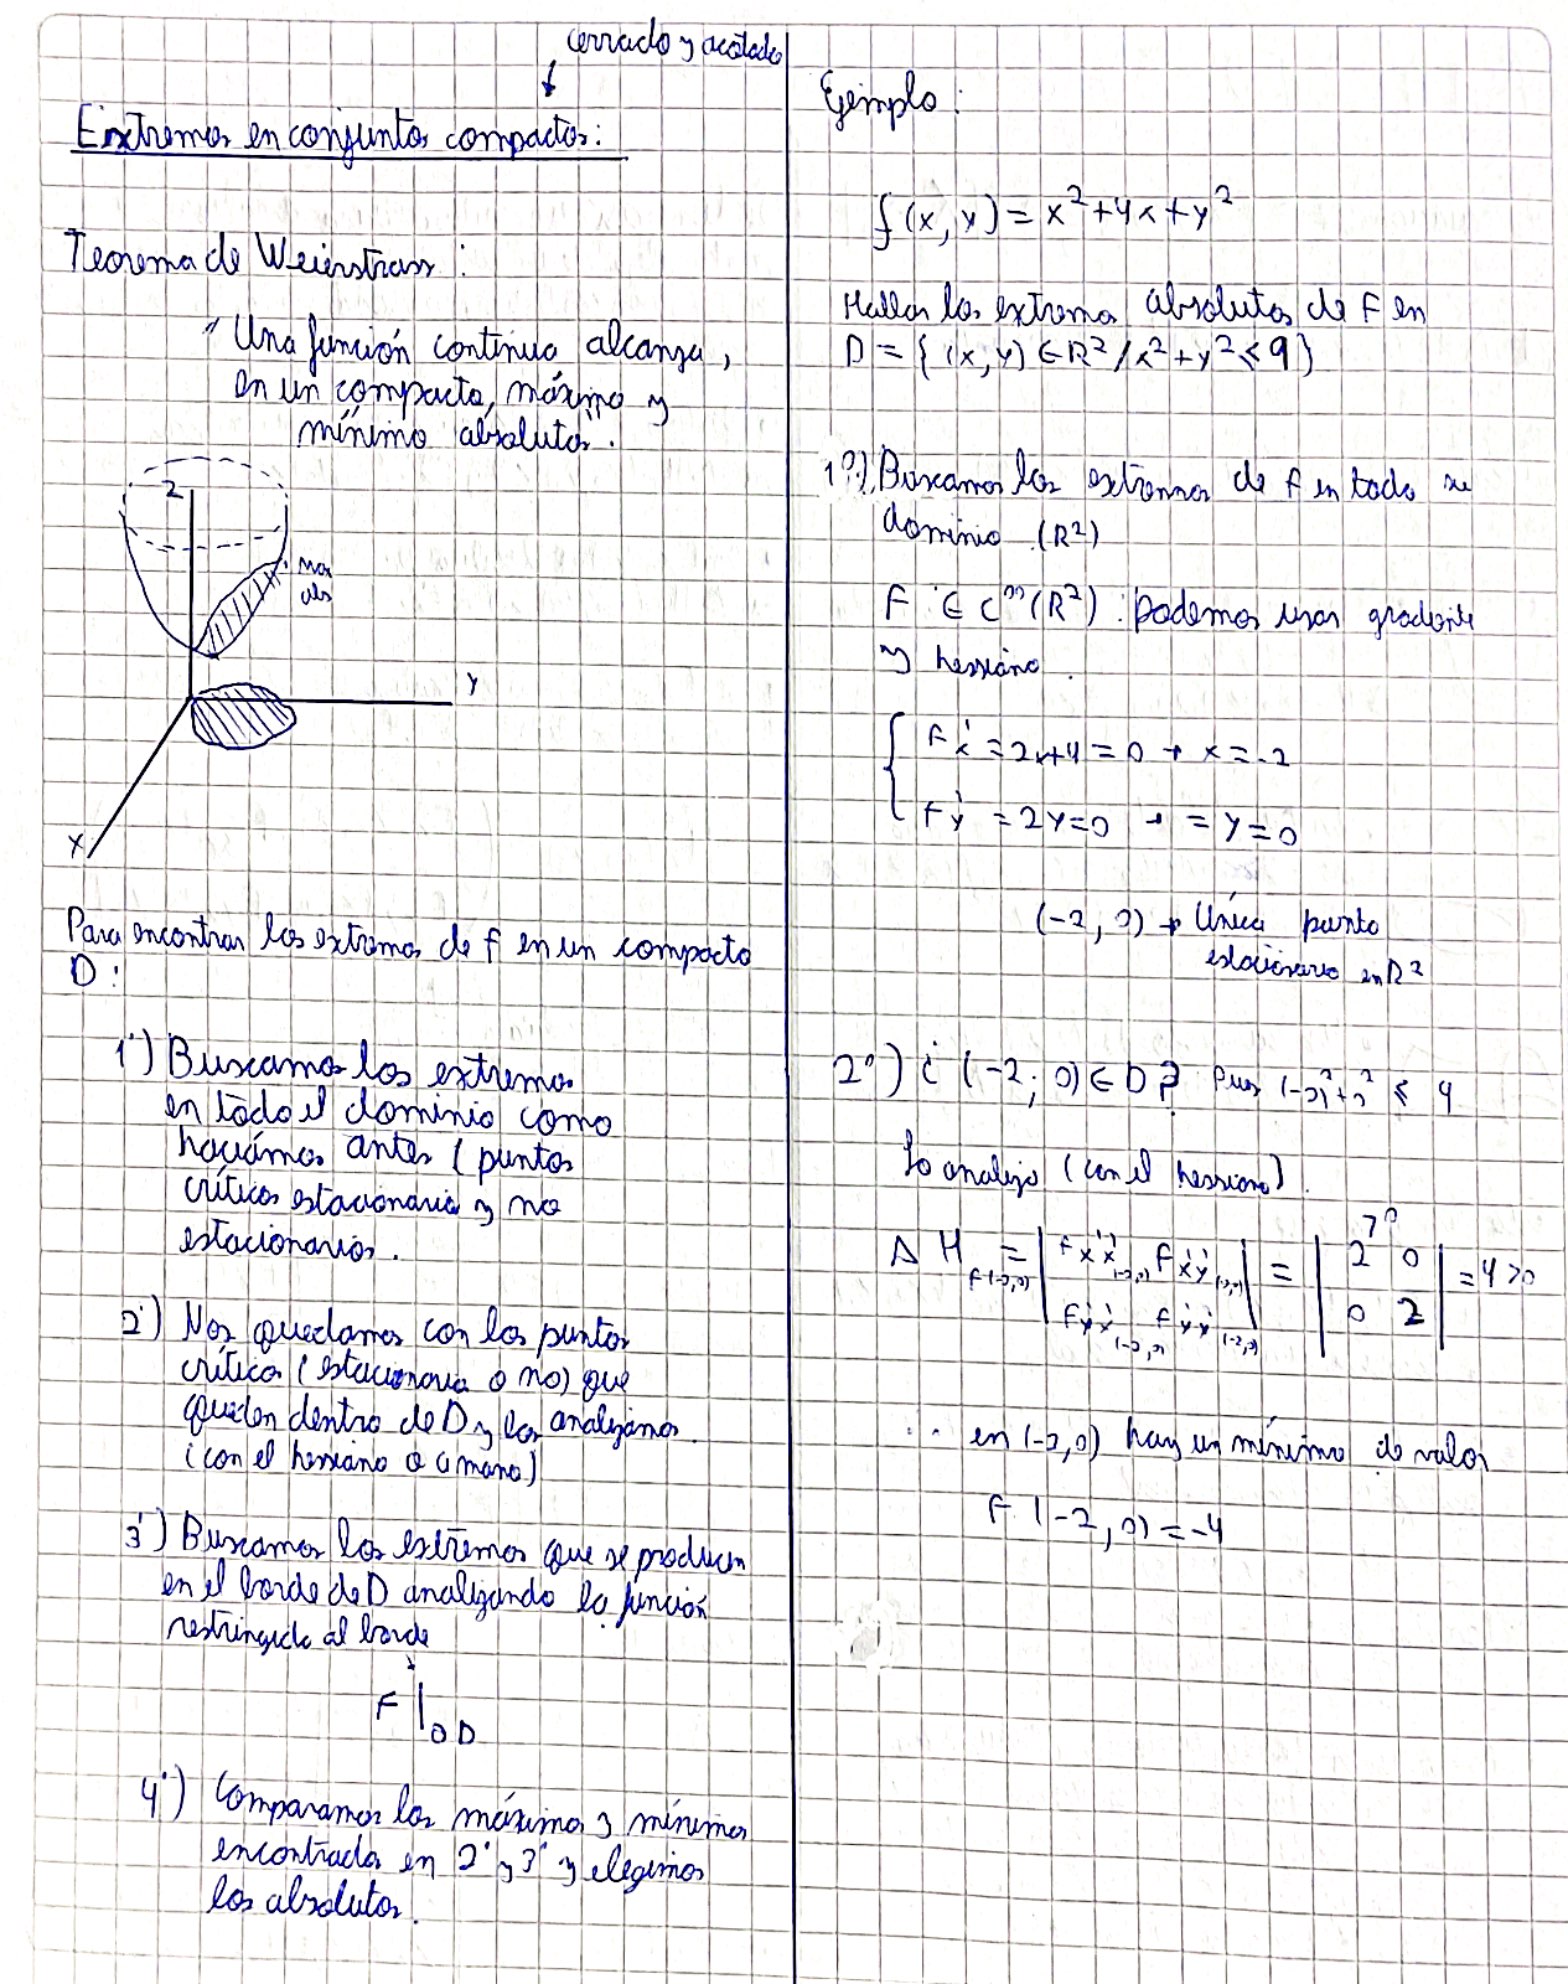 cerrado y acotado
↓
Extremos en conjuntos compactos:
Teorema de Weierstrass:
"Una función continua alcanza,
en un compacto, máximo y
mínimo absolutos".
z
max
abs
y
x
Para encontrar los extremos de f en un compacto
D:
1°) Buscamos los extremos
en todo el dominio como
hacíamos antes (puntos
críticos estacionarios y no
estacionarios.
2°) Nos quedamos con los puntos
críticos (estacionarios o no) que
queden dentro de D y los analizamos.
(con el hessiano o a mano)
3°) Buscamos los extremos que se producen
en el borde de D analizando la función
restringida al borde
F |∂D
4°) Comparamos los máximos y mínimos
encontrados en 2° y 3° y elegimos
los absolutos.
Ejemplo:
f(x,y) = x² + 4x + y²
Hallar los extremos absolutos de F en
D = {(x,y) ∈ R² / x² + y² ≤ 9}
1°) Buscamos los extremos de f en todo su
dominio (R²)
F ∈ C^∞(R²) : podemos usar gradiente
y hessiano.
{ F'x = 2x+4 = 0 → x = -2
F'y = 2y = 0 → = y = 0
(-2, 0) → Único punto
estacionario en R²
2°) ¿(-2; 0) ∈ D? Pues (-2)² + 0² ≤ 9
Lo analizo (con el hessiano).
Δ H F(-2,0) = | F''xx (-2,0) F''xy (-2,0) | = | 2 >0 0 | = 4 > 0
| F''yx (-2,0) F''yy (-2,0) | | 0 2 |
∴ en (-2,0) hay un mínimo de valor
F (-2, 0) = -4